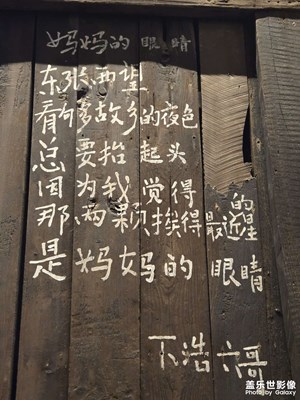 妈妈的眼睛
东张西望
看向穿故乡的夜色
总要抬起头
因为我觉得
那两颗挨得最近的星
是妈妈的眼睛
下浩六哥
盖乐世影像
Photo by Galaxy